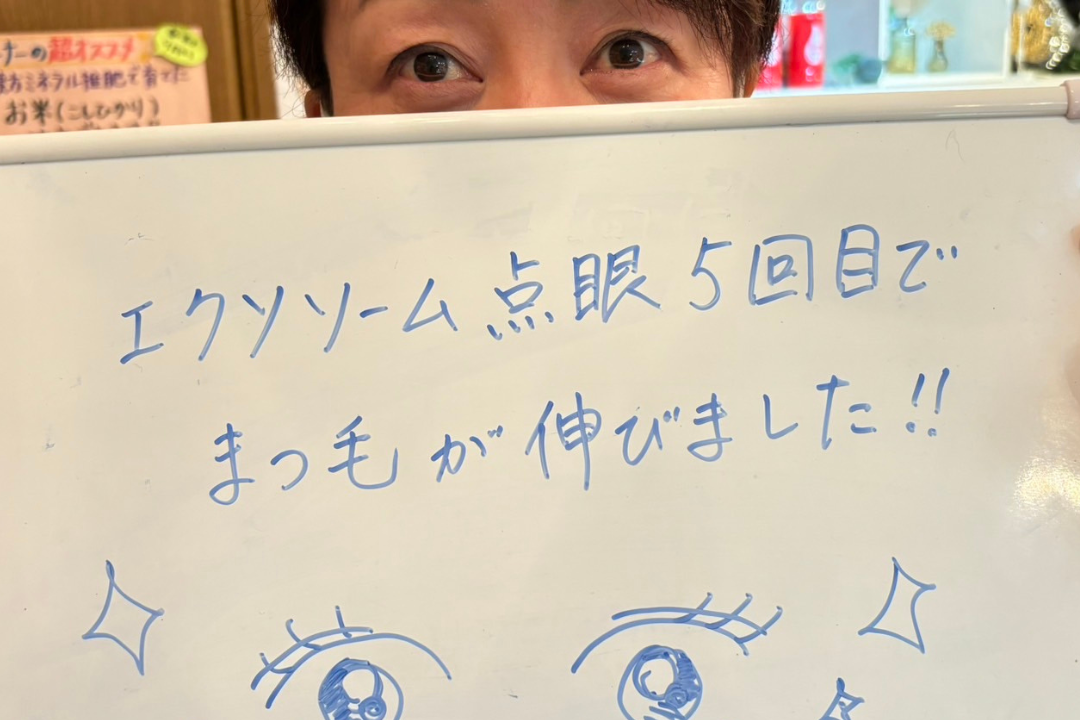 ナーの超オススメ
ミネラル堆肥で育てた
お米(こしひかり)
エクソソーム点眼5回目で
まつ毛が伸びました!!